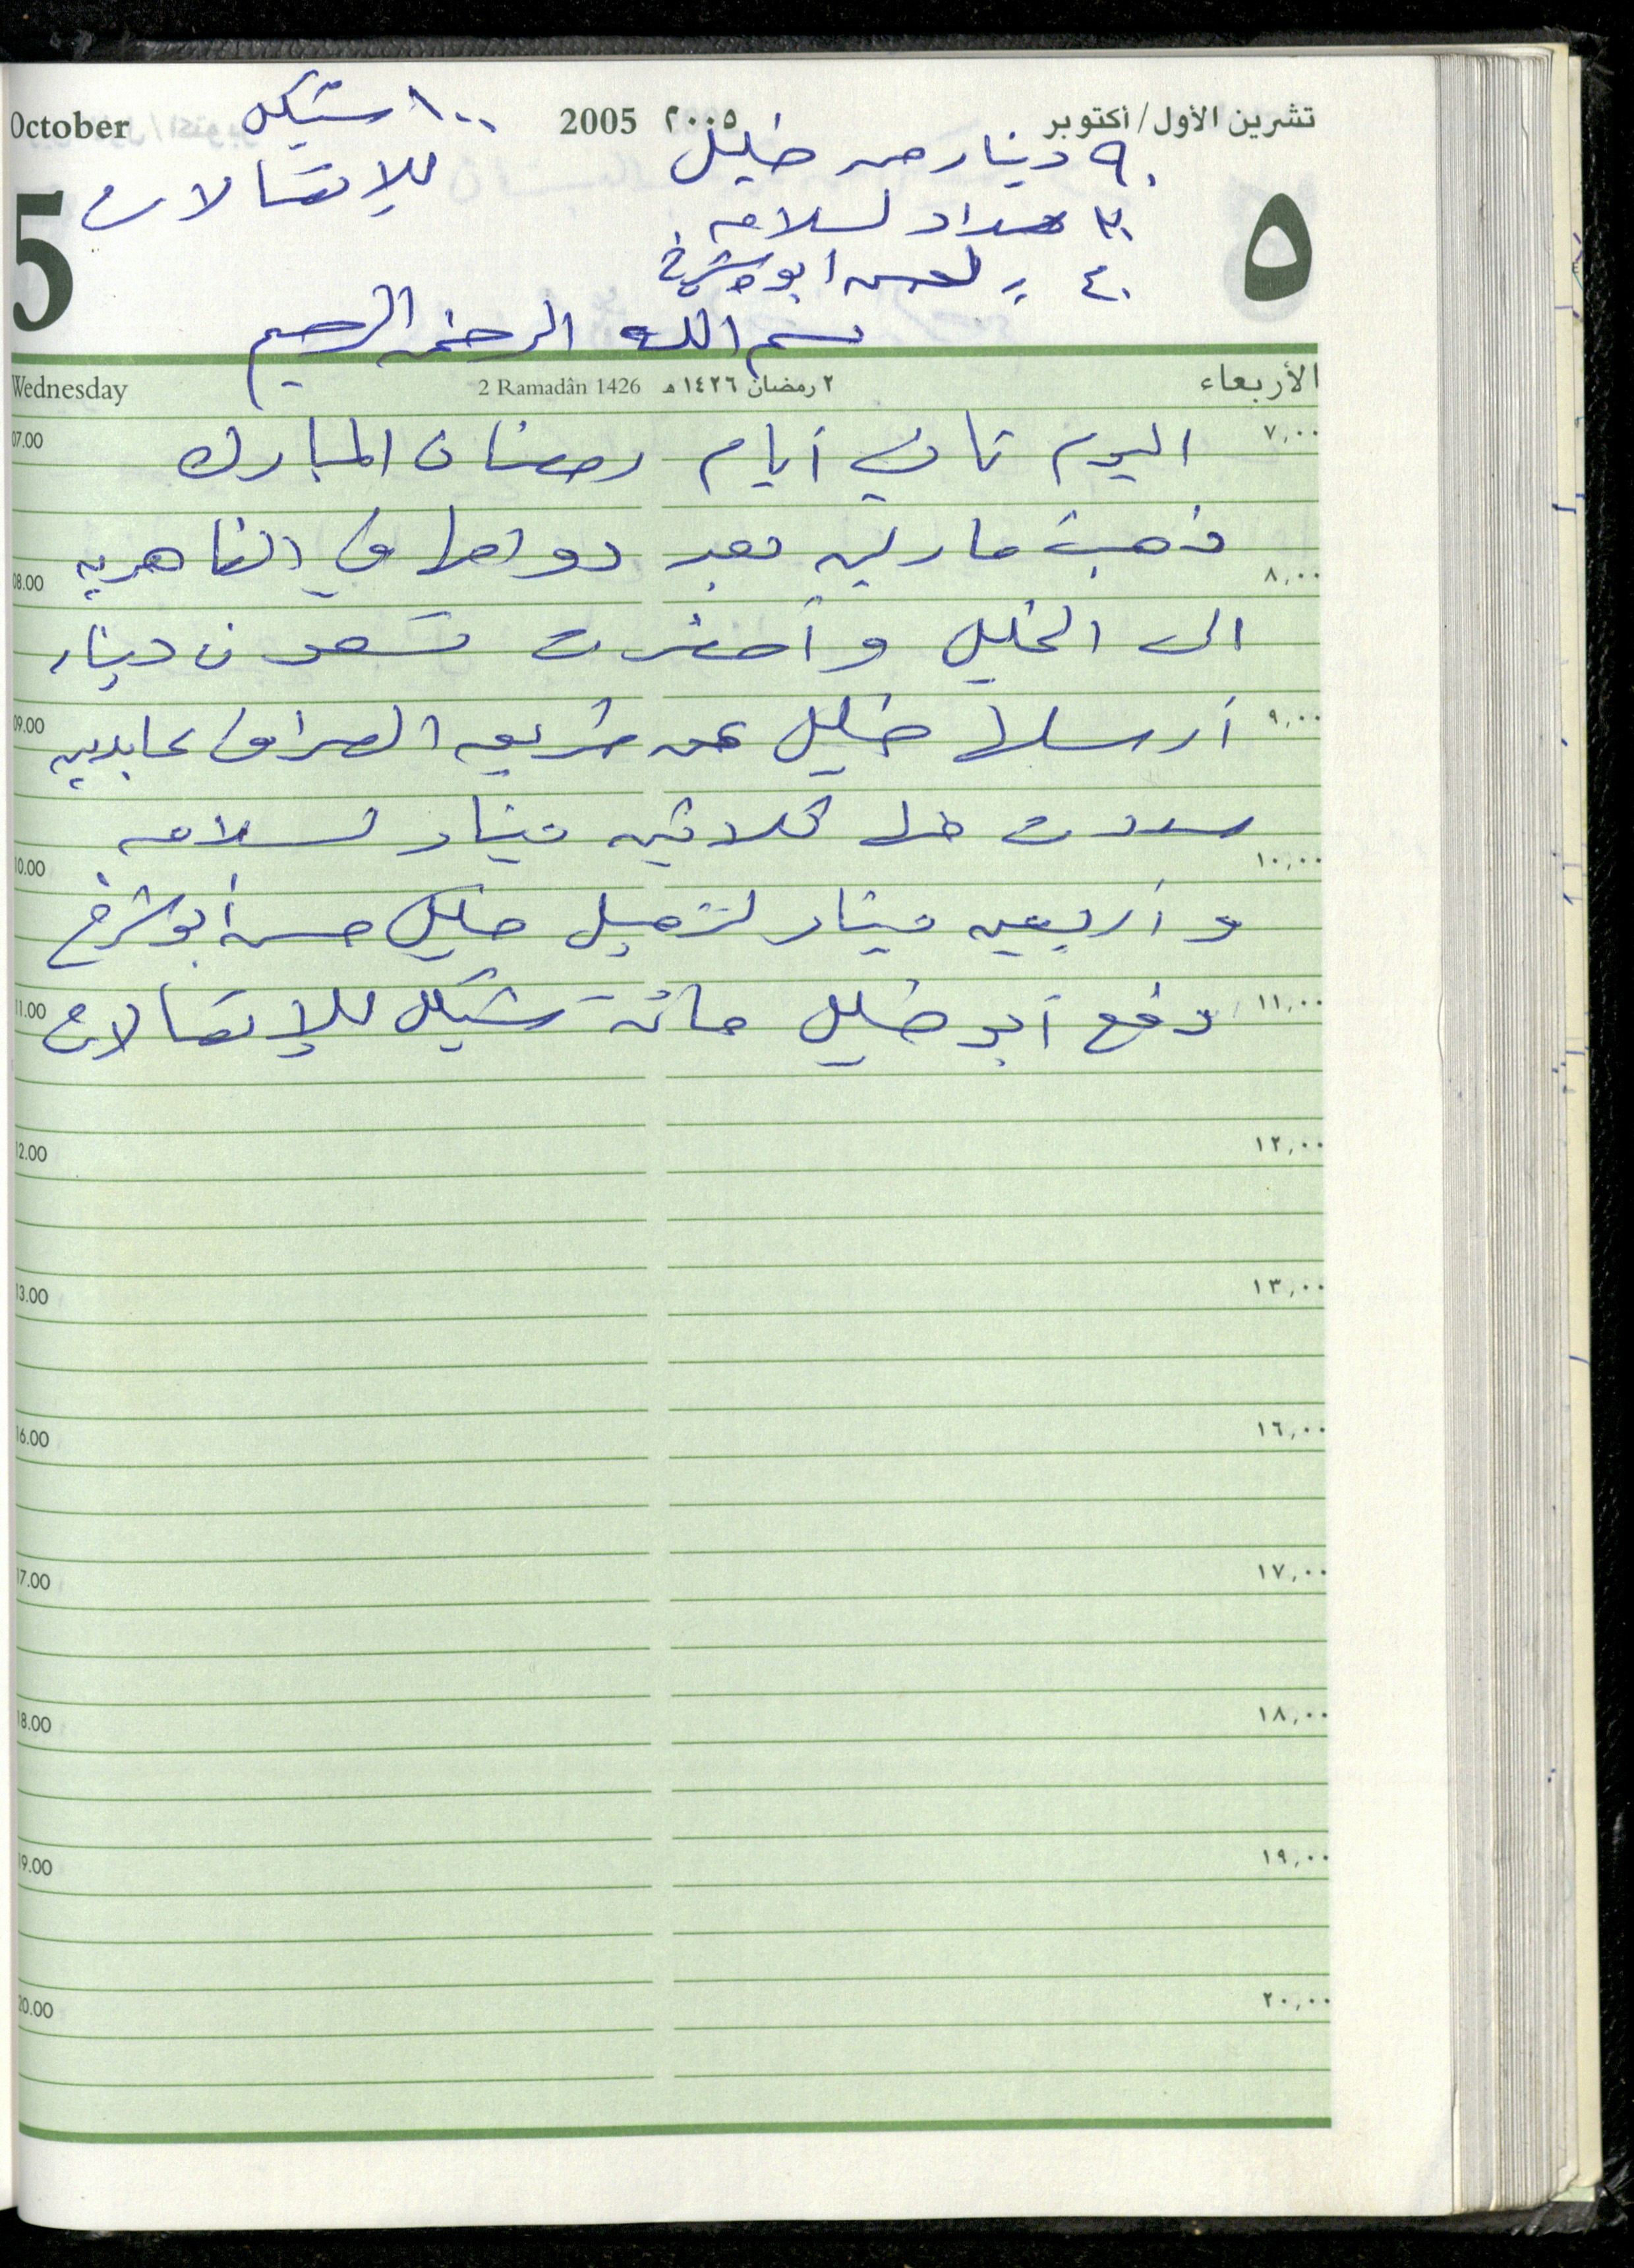 October 2005 ٢٠٠٥ تشرين الأول/أكتوبر
١٠٠ شيكل
للإتصالات
٩٠ دينار من خليل
٣٠ سداد لسلامه
٤٠ // لحسن ابو شرخ
5 ٥
بسم الله الرحمن الرحيم
Wednesday 2 Ramadân 1426 ٢ رمضان ١٤٢٦ هـ الأربعاء
07.00 ٧,٠٠
اليوم ثاني أيام رمضان المبارك
ذهبت مارلين بعد دوامها في الظاهريه
08.00 ٨,٠٠
الى الخليل وأحضرت تسعون دينار
09.00 ٩,٠٠
أرسلها خليل عن طريق الصراف عابدين
سددت منها ثلاثين دينار لسلامه
10.00 ١٠,٠٠
وأربعين دينار لزميل خليل حسن أبو شرخ
11.00 ١١,٠٠
دفع أبو خليل مائة شيكل للإتصالات
12.00 ١٢,٠٠
13.00 ١٣,٠٠
16.00 ١٦,٠٠
17.00 ١٧,٠٠
18.00 ١٨,٠٠
19.00 ١٩,٠٠
20.00 ٢٠,٠٠